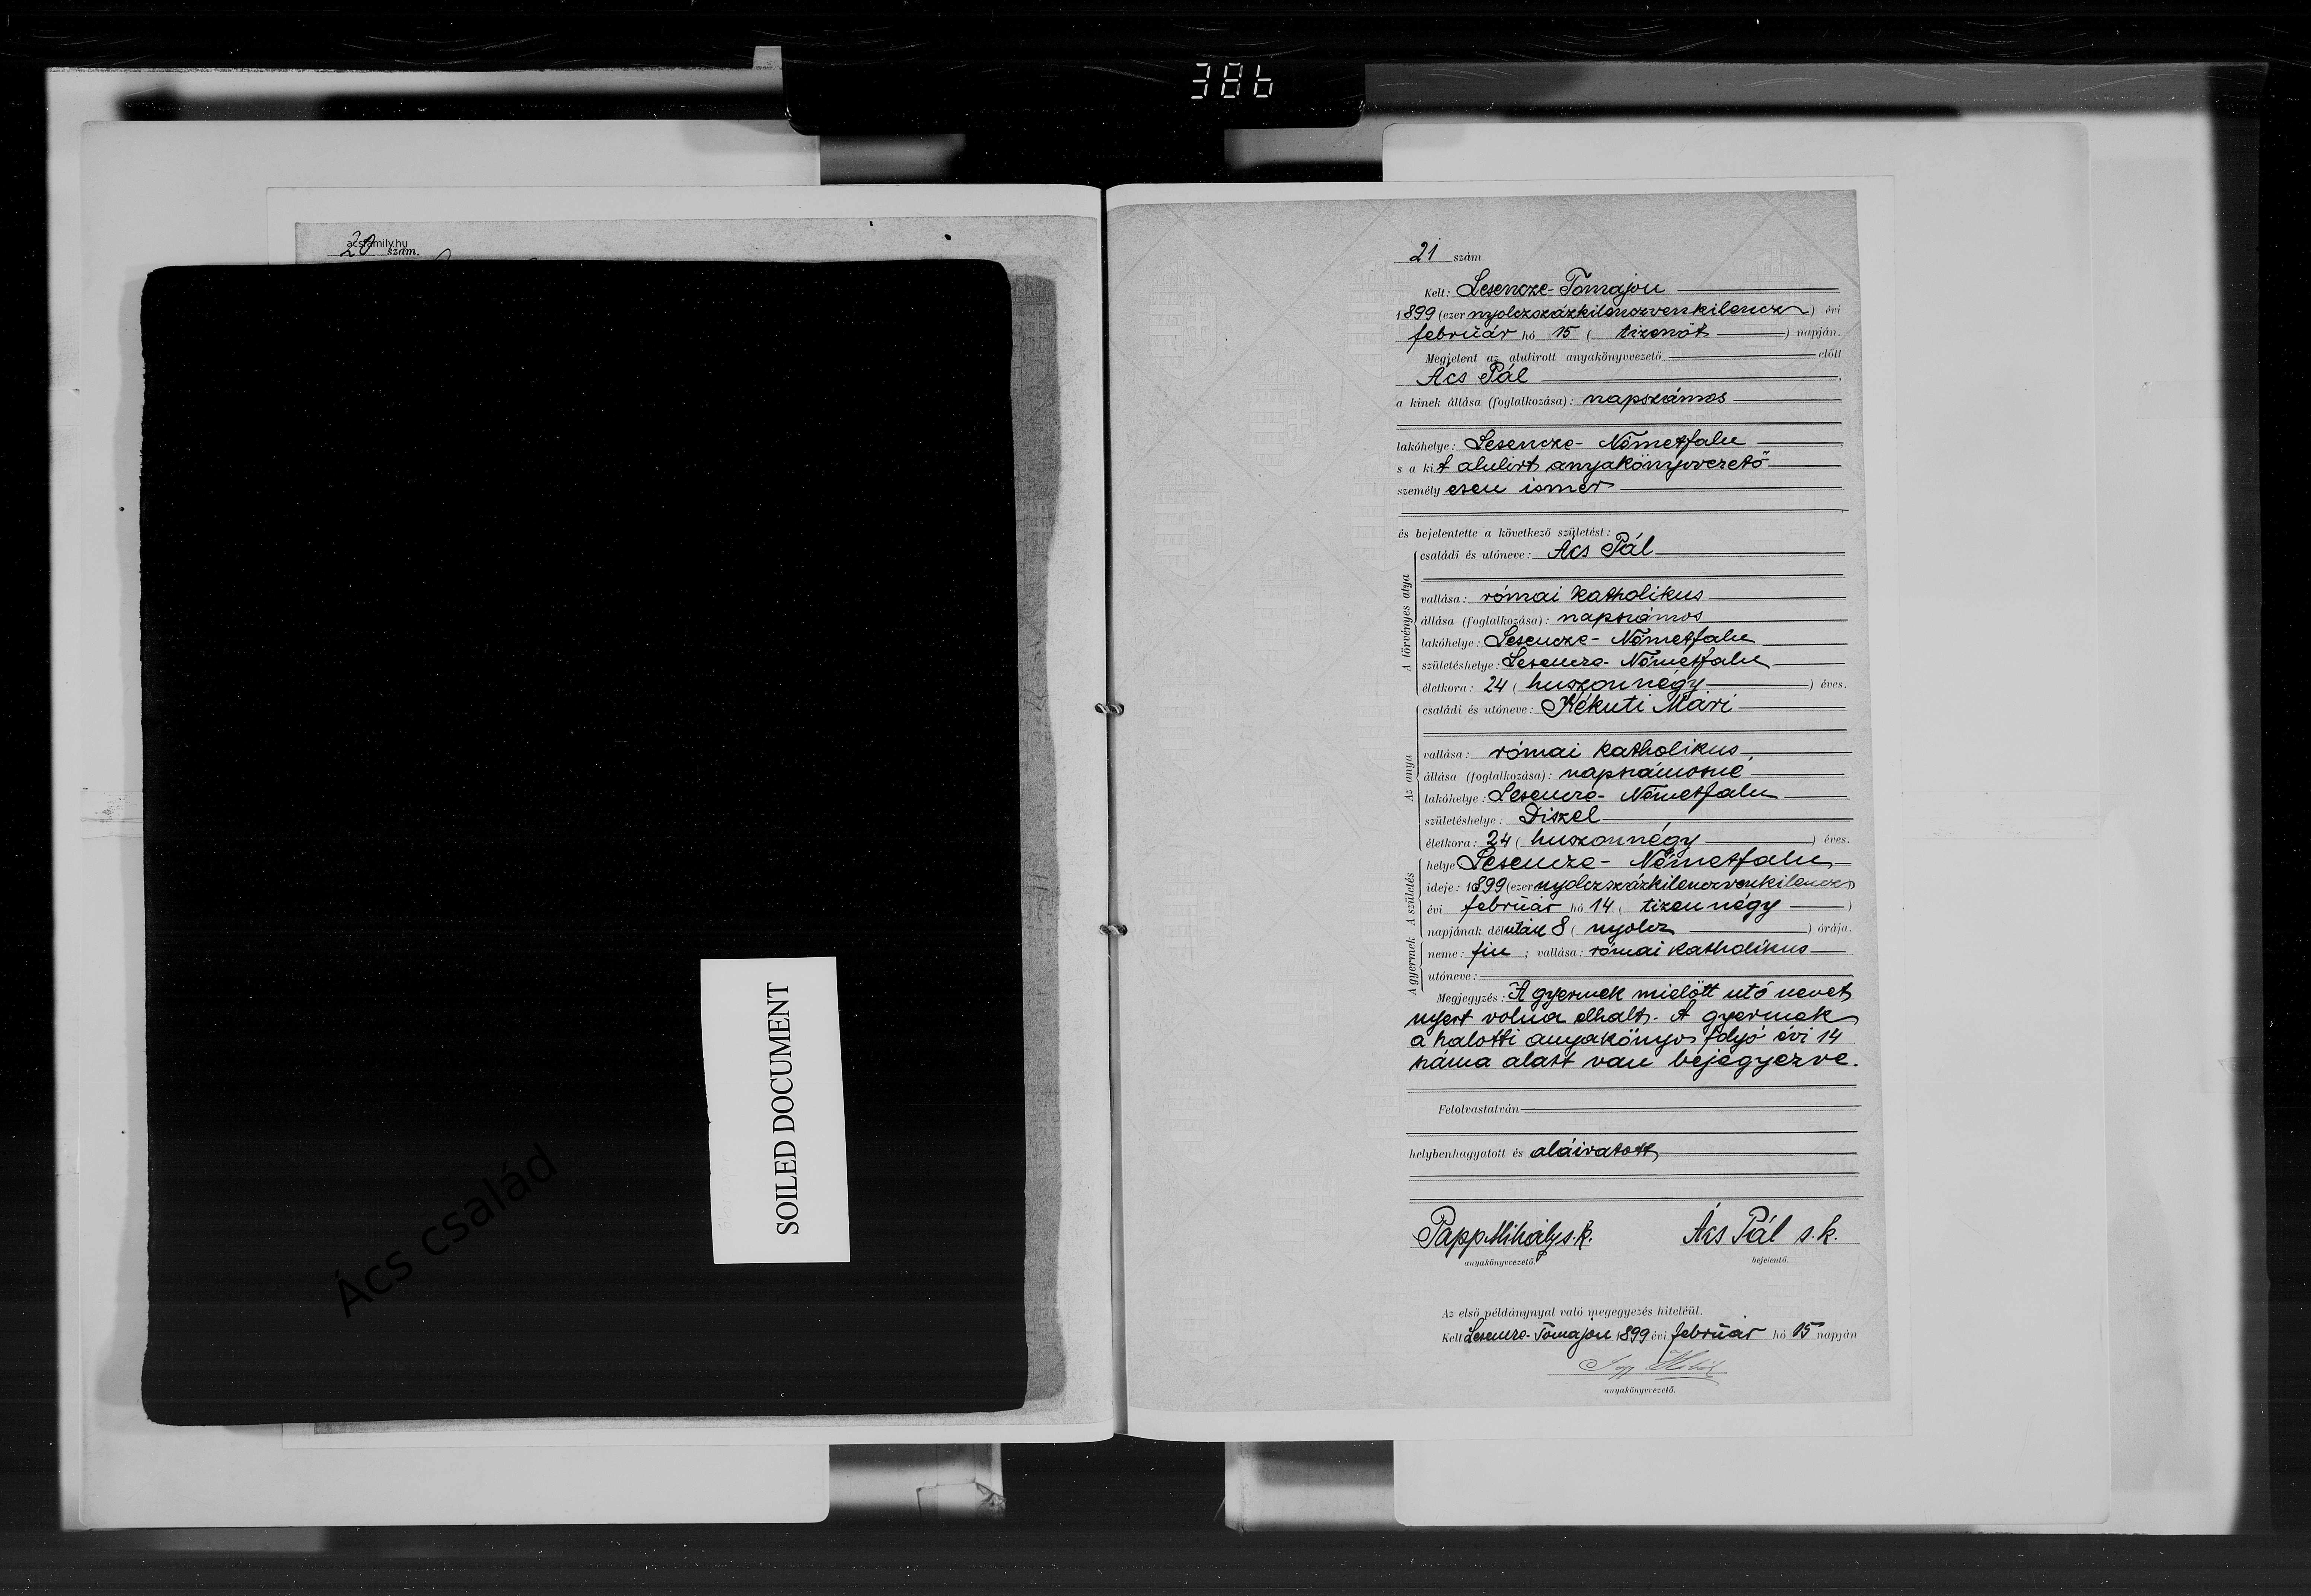 386
20 szám.
acsfamily.hu
SOILED DOCUMENT
Ács család
21 szám
Kelt: Lesencze-Tomajon
1899 (ezer nyolczszázkilenczvenkilencz) évi
február hó 15 ( tizenöt ) napján.
Megjelent az alulirott anyakönyvvezető előtt
Ács Pál
a kinek állása (foglalkozása): napszámos
lakóhelye: Lesencze- Németfalu
s a kit alulirt anyakönyvvezető
személyesen ismer
és bejelentette a következő születést:
A törvényes atya
családi és utóneve: Ács Pál
vallása: római katholikus
állása (foglalkozása): napszámos
lakóhelye: Lesencze- Németfalu
születéshelye: Lesencze- Németfalu
életkora: 24 ( huszonnégy ) éves.
Az anya
családi és utóneve: Kékuti Mári
vallása: római katholikus
állása (foglalkozása): napszámosné
lakóhelye: Lesencze- Németfalu
születéshelye: Diszel
életkora: 24 ( huszonnégy ) éves.
A gyermek A születés
helye Lesencze- Németfalu
ideje: 1899 (ezer nyolczszázkilenczvenkilencz)
évi február hó 14 ( tizennégy )
napjának délután 8 ( nyolcz ) órája.
neme: fiu ; vallása: római katholikus
utóneve:
Megjegyzés: A gyermek mielőtt utó nevet
nyert volna elhalt. A gyermek
a halotti anyakönyv folyó évi 14
száma alatt van bejegyezve.
Felolvastatván
helybenhagyatott és aláiratott
Papp Mihály s.k. Ács Pál s.k.
anyakönyvvezető. bejelentő.
Az első példánynyal való megegyezés hiteléül.
Kelt Lesencze-Tomajon 1899 évi február hó 15 napján
Papp Mihály
anyakönyvvezető.